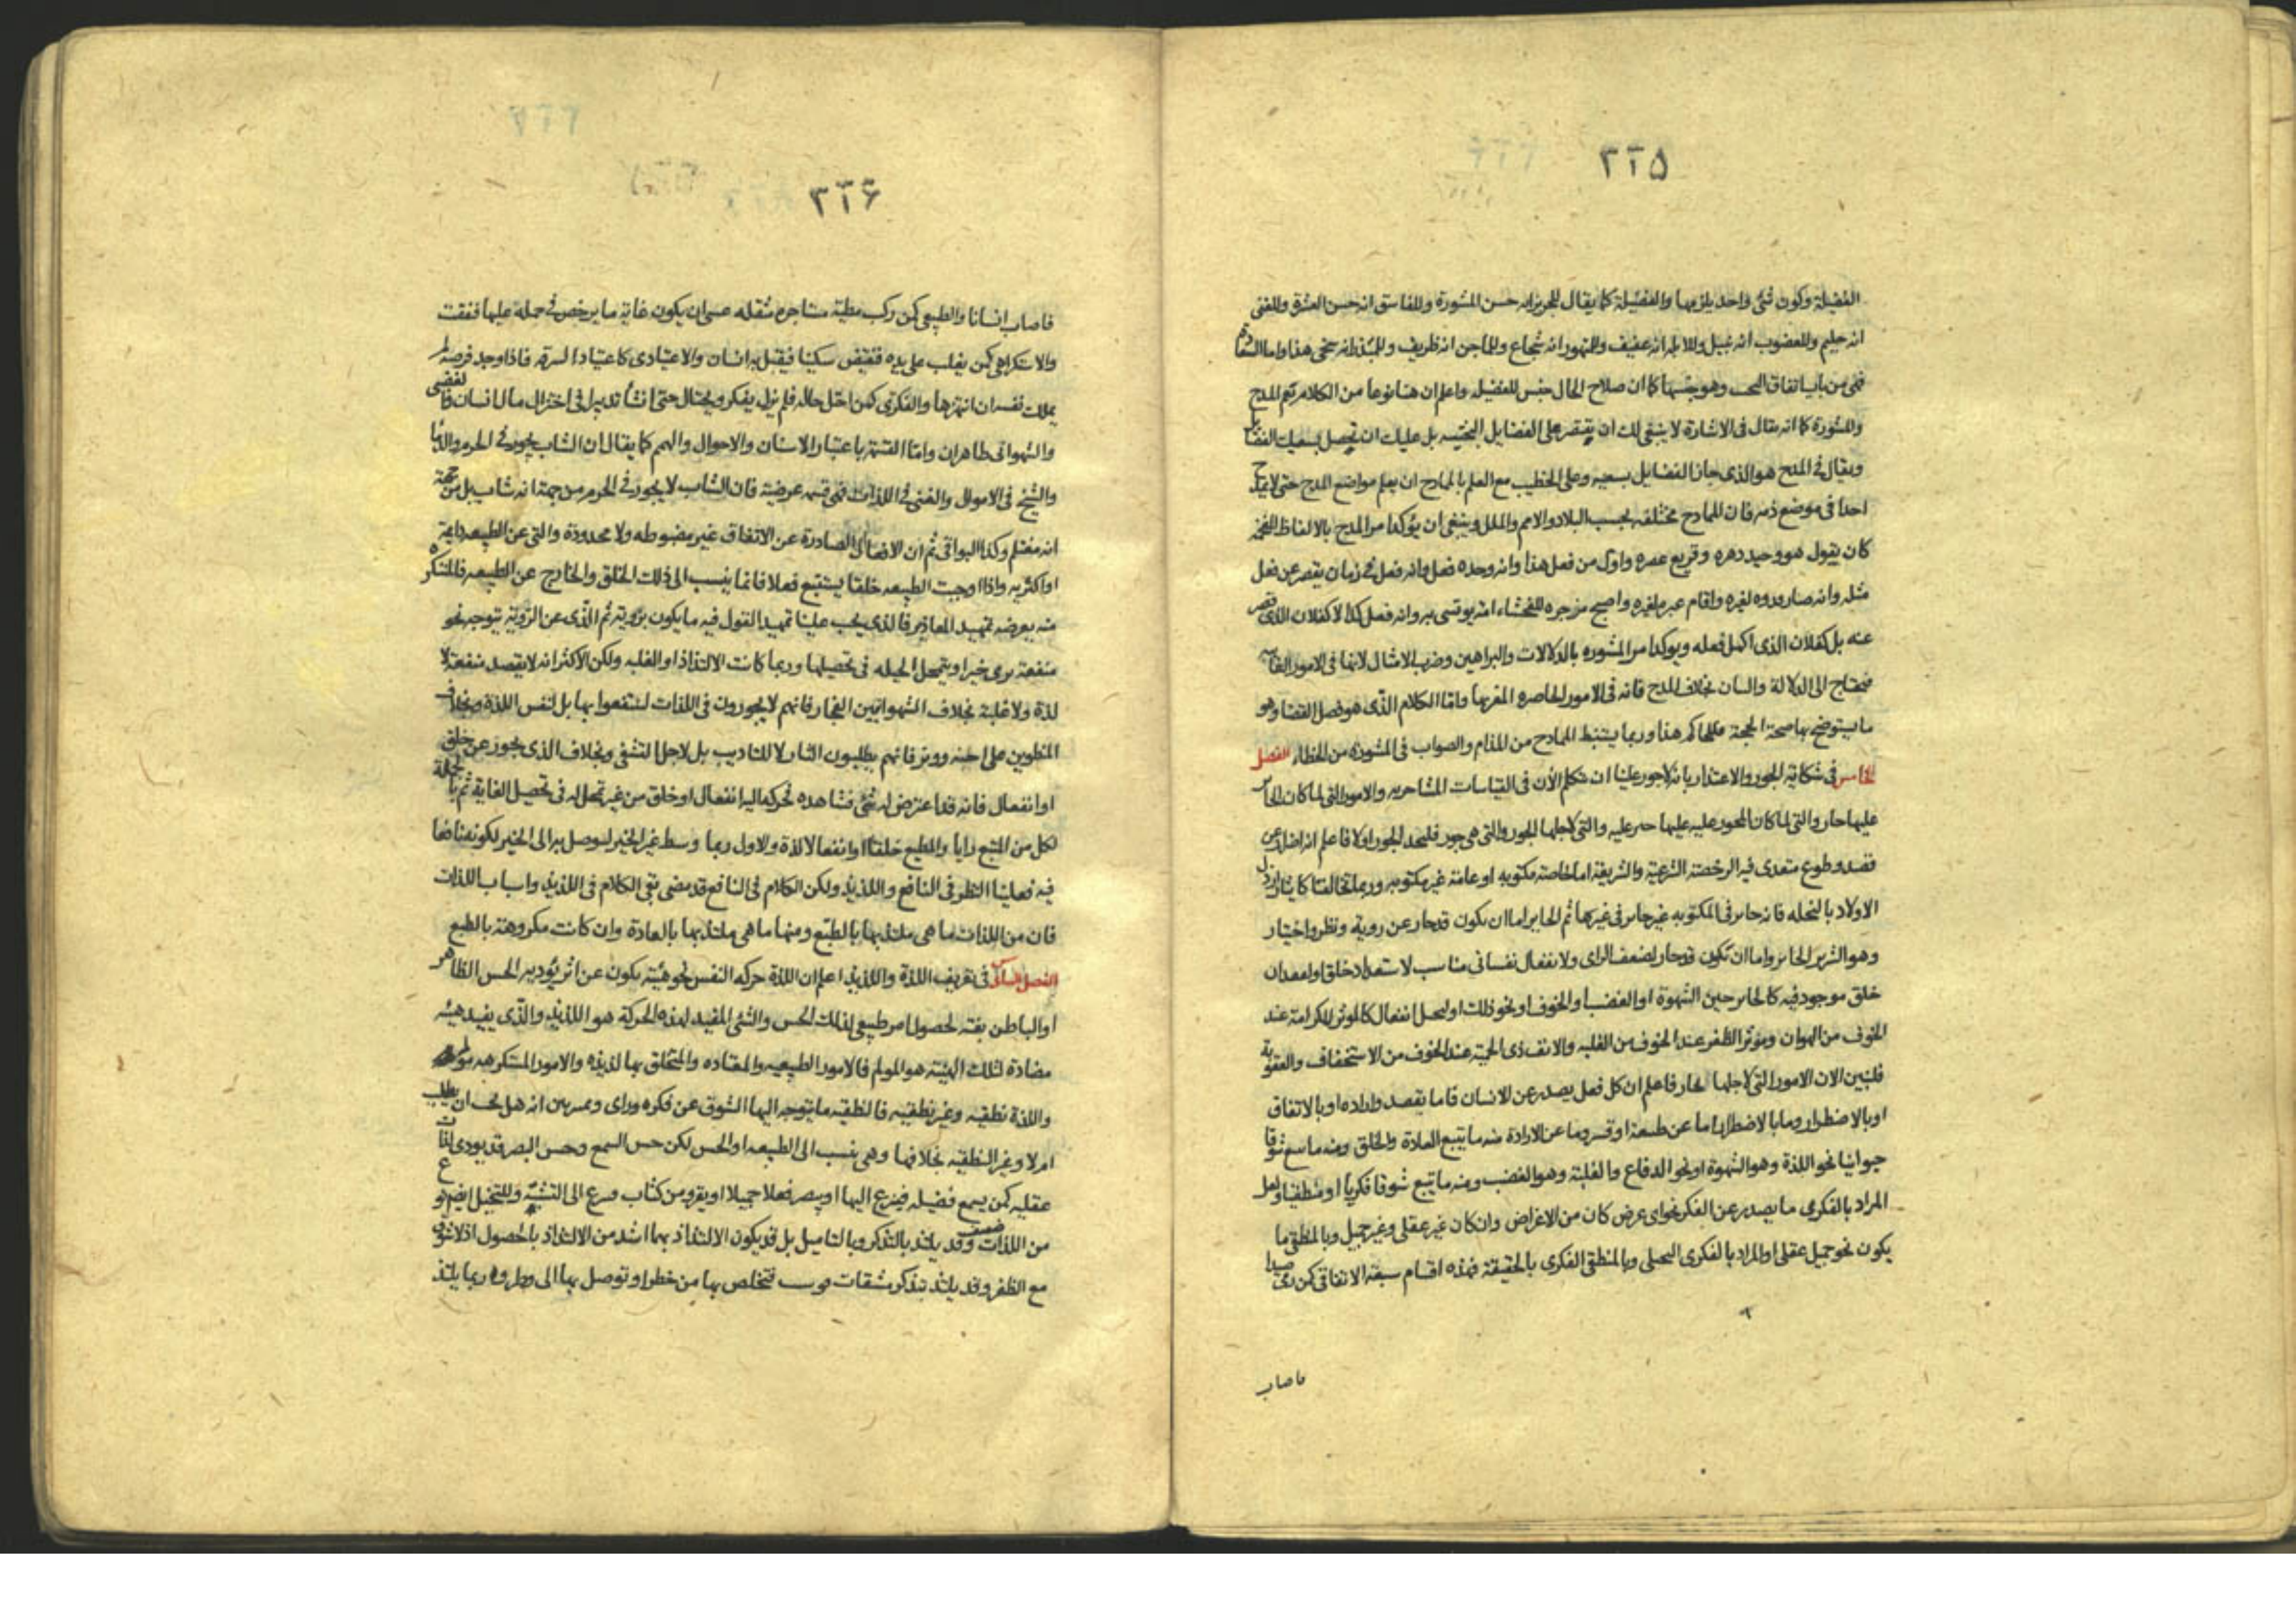 ٣٢۵
الفضيلة وكون شئ واحد يلزمها والفضيلة كما يقال للجربز انه حسن المشورة وللفاسق انه حسن العشرة وللغنى
انه حليم وللغضوب انه نبيل وللابله انه عفيف وللمتهور انه شجاع وللماجن انه ظريف وللمبذر انه سخى هذا واما السعادة
فهى من باب اتفاق البخت وهو جنسها كما ان صلاح الحال جنس للفضيله واعلم ان هنا نوعا من الكلام يعم المدح
والمشورة كما انه يقال فى الاشارة لا ينبغى لك ان يقتصر على الفضايل البختيه بل عليك ان تحصل بسعيك الفضايل
ويقال فى المدح هو الذى حاز الفضايل بسعيه وعلى الخطيب مع العلم بالممادح ان يعلم مواضع المدح حتى لا يمدح
احدا فى موضع ذمه فان الممادح مختلفه بحسب البلاد والامم والملل وينبغى ان يؤكد امر المدح بالالفاظ المفخمه
كان يقول هو وحيد دهره وقريع عصره واول من فعل هذا وانه وحده فعل وانه فعل فى زمان يقصر عن فعل
مثله وانه صار قدوه لغيره واقام غيره واصبح مزجره للفحشاء انه يوتسى به وانه فعل كذا لا كفلان الذى قصر
عنه بل كفلان الذى اكمل فعله ويوكد امر المشوره بالدلالات والبراهين وضرب الامثال لانها فى الامور الغائبه
فيحتاج الى الدلالة والبيان بخلاف المدح فانه فى الامور الحاضره المفرغ منها واما الكلام الذى هو فصل القضا وهو
ما يستوضح بها صحة الحجة فللحاكم هذا وربما يستنبط الممادح من المذام والصواب فى المشوره من الخطاء الفصل
الخامس فى شكاية الجور والاعتذار بانه لا جور علينا ان نتكلم الآن فى القياسات المشاجريه والامور التى لما كان الجاير
عليها جار والتى لما كان المجور عليه عليها جير عليه والتى لاجلها الجور والتى هى جور فليحد الجور اولا فاعلم انه اضرار عن
قصد وطوع متعدى فيه الرخصة الشرعية والشريعة اما خاصة مكتوبه او عامة غير مكتوبه وربما تخالفتا كايثار ارذل
الاولاد بالنحله فانه جاير فى المكتوبه غير جاير فى غيرها ثم الجاير اما ان يكون قد جار عن روية ونظر واختيار
وهو الشرير الجاير واما ان تكون قد جار لضعف الراى ولانفعال نفسانى مناسب لاستعداد خلق او لفقدان
خلق موجود فيه كالجاير حين الشهوة او الغضب او الخوف او نحو ذلك او لمحل انفعال كالموثر للكرامة عند
الخوف من الهوان وموثر الظفر عند الخوف من الغلبه والانف ذى الحمية عند الخوف من الاستخفاف والعقوبة
فلنبين الان الامور التى لاجلها الجار فاعلم ان كل فعل يصدر عن الانسان فاما بقصد وارادة او بالاتفاق
او بالاضطرار وما بالاضطرار اما عن طبيعة او قسر وما عن الارادة منه ما يتبع العادة والخلق ومنه ما يتبع شوقا
حيوانيا نحو اللذة وهو الشهوة او نحو الدفاع والغلبة وهو الغضب ومنه ما يتبع شوقا فكريا او منطقيا ولعل
المراد بالفكرى ما يصدر عن الفكر نحو اى عرض كان من الاغراض وان كان غير عقلى وغير جميل وبالمنطقى ما
يكون نحو جميل عقلى او المراد بالفكرى التخيلى وبالمنطقى الفكرى بالحقيقة فهذه اقسام سبعة الاتفاقى كمن رمى صيدا
فاصاب
٣٢۶
فاصاب انسانا والطبيعى كمن ركب مطية مستاجره مثقله عسى ان يكون غاية ما يرخص فى حمله عليها فنفقت
والاستكراهى كمن يغلب على يده فتقبض سكينا فيقتل به انسان والاعتيادى كاعتياد السرقه فاذا وجد فرصة لم
يملك نفسه ان انتهزها والفكرى كمن اختل حاله فلم يزل يفكر ويحتال حتى انشأ تدبيرا فى اختزال مال انسان والغضبى
والشهوانى ظاهران واما القسمة باعتبار الاسنان والاحوال والهمم كما يقال ان الشاب يجور فى الحرم والدنيا
والشيخ فى الاموال والغنى فى اللذات فهى قسمه عرضية فان الشاب لا يجور فى الحرم من جهة انه شاب بل من جهة
انه مغتلم وكذا البواقى ثم ان الافعال الصادرة عن الاتفاق غير مضبوطه ولا محدودة والتى عن الطبيعه دايمة
او اكثريه واذا اوجبت الطبيعه خلقا يستتبع فعلا فانما ينسب الى ذلك الخلق والخارج عن الطبيعه فالمستكره
منه يعرضه تمهيد المعاذير فالذى يجب علينا تمهيد القول فيه ما يكون بروية ثم الذى عن الروية يتوجه نحو
منفعة يرى خيرا ويتمحل الحيله فى تحصيلها وربما كانت الالتذاذ او الغلبه ولكن الاكثر انه لا يقصد منفعة لا
لذة ولا غلبة بخلاف الشهوانيين الفجار فانهم لا يجورون فى اللذات لينتفعوا بها بل لنفس اللذة وبخلاف
المنطوين على احنه ووتر فانهم يطلبون الثار لا للتاديب بل لاجل التشفى وبخلاف الذى يجوز عن خلق
او انفعال فانه قد اعترض له شئ فشاهده تحركه اليه انفعال او خلق من غير تمحل له فى تحصيل الغاية ثم بالجملة
لكل من المتبع رايا والمطيع خلقا او انفعالا لذة والاول ربما وسط غير الخير ليوصل به الى الخير لكونه نافعا
فيه فعلينا النظر فى النافع واللذيذ ولكن الكلام فى النافع قد مضى بقى الكلام فى اللذيذ واسباب اللذات
فان من اللذات ما هى ملتذ بها بالطبع ومنها ما هى ملتذ بها بالعادة وان كانت مكروهة بالطبع
الفصل السادس فى تعريف اللذة واللذيذ اعلم ان اللذة حركه النفس نحو هيئة يكون عن اثر يؤديه الحس الظاهر
او الباطن بغته لحصول امر طبيعى لذلك الحس والشئ المفيد لهذه الحركة هو اللذيذ والذى يفيد هيئه
مضادة لتلك الهيئة هو المولم فالامور الطبيعيه والمعتاده والمتخلق بها لذيذه والامور المستكرهه مولمه
واللذة نطقيه وغير نطقيه فالنطقيه ما يتوجه اليها الشوق عن فكره وراى وتمييز بين انه هل يجب ان يطلب
ام لا وغير النطقيه بخلافها وهى ينسب الى الطبيعه او الحس لكن حس السمع وحس البصر قد يودى لذات
عقليه كمن يسمع فضيله فينزع اليها او يبصر فعلا جميلا او يقرء من كتاب فينزع الى التشبه وللتخيل ايضا نوع
من اللذات ضعيف وقد يلتذ بالتذكر وبالتاميل بل قد يكون الالتذاذ بهما اشد من الالتذاذ بالحصول اذ لا شوق
مع الظفر وقد يلتذ بتذكر مشقات فتخلص بها من خطر او توصل بها الى وطر وربما يلتذ